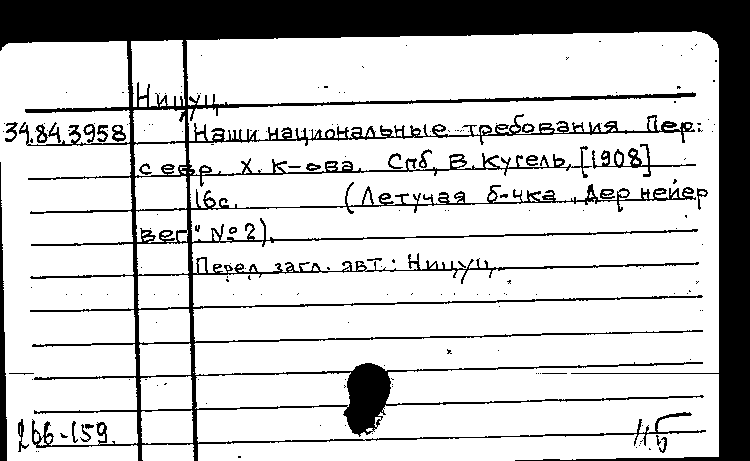 Ницуц.
34.84.3958 Наши национальные требования. Пер.
с евр. Х. К-ова. Спб, В. Кугель, [1908]
16с. (Летучая б-чка „Дер нейер
вег": №2).
Перед загл. авт.: Ницуц.
266-159.